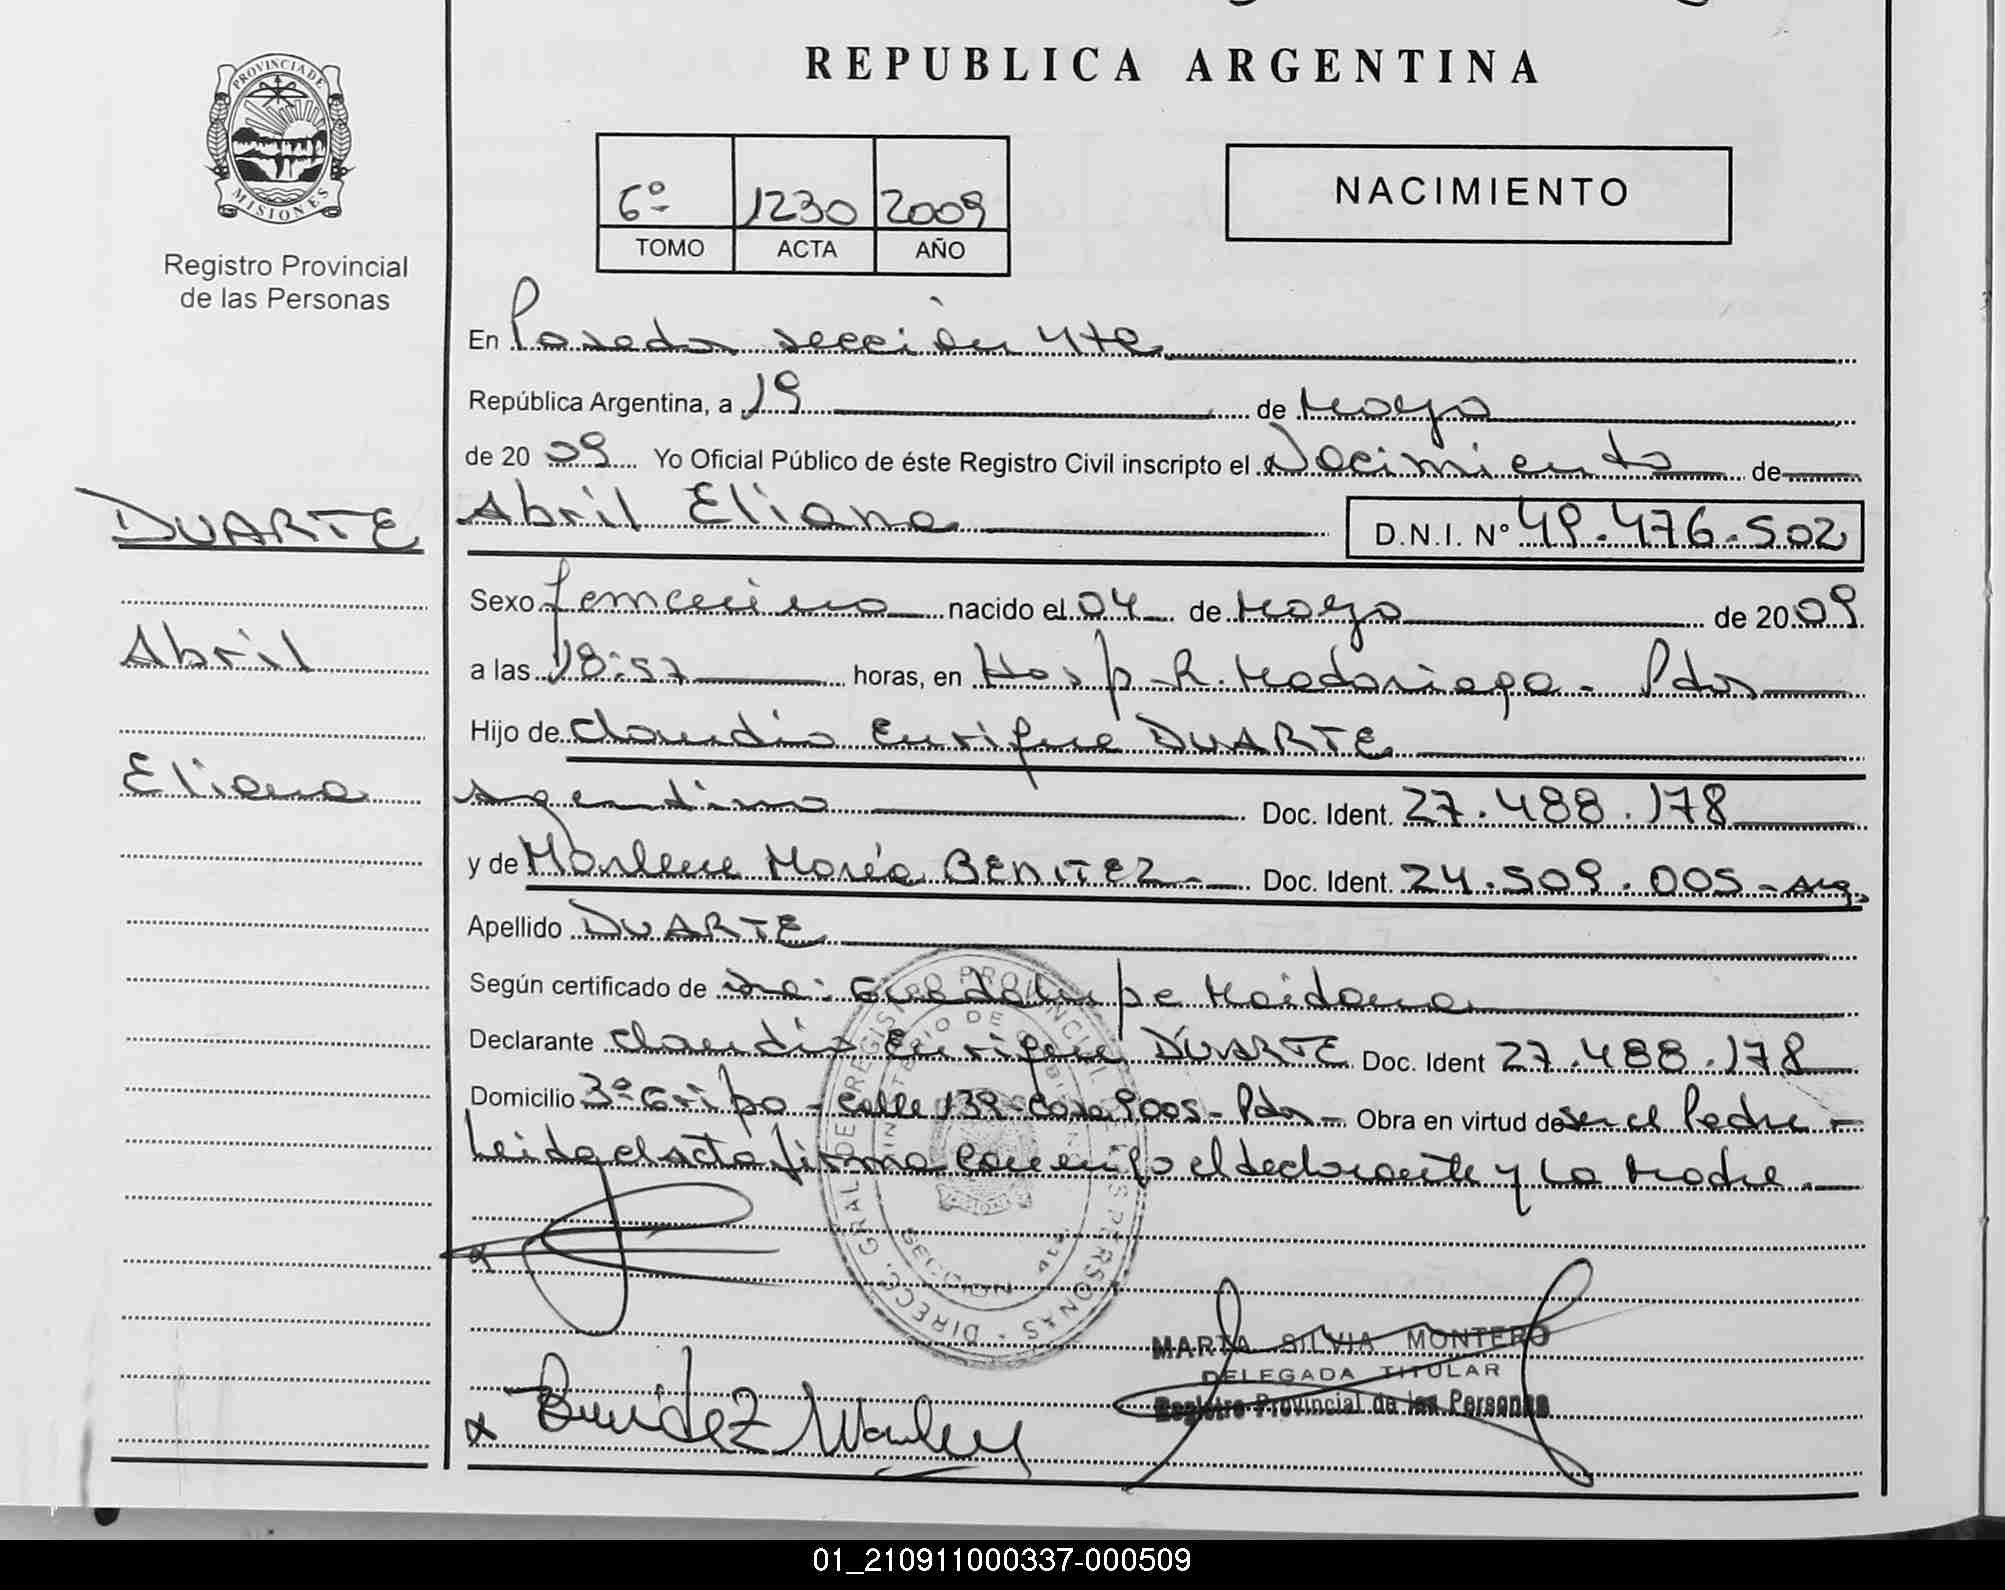 PROVINCIA DE
MISIONES
Registro Provincial
de las Personas
REPUBLICA ARGENTINA
6º 1230 2009
TOMO ACTA AÑO
NACIMIENTO
En Posadas sección 4ta
República Argentina, a 19 de Mayo
de 20 09 Yo Oficial Público de éste Registro Civil inscripto el Nacimiento de
DUARTE
Abril Eliana D.N.I. Nº 49.476.502
Sexo femenino nacido el 04 de Mayo de 20 09
Abril
a las 18:57 horas, en Hosp. R. Madariaga - Pdas
Hijo de Claudio Enrique DUARTE
Eliana
Argentino Doc. Ident. 27.488.178
y de Marlene María BENITEZ - Doc. Ident. 24.509.005 - Arg.
Apellido DUARTE
Según certificado de Dra: Guadalupe Maidana
Declarante Claudio Enrique DUARTE Doc. Ident 27.488.178
Domicilio 3º Gripo - Calle 139 - Casa 9005 - Pdas - Obra en virtud de ser el Padre -
Leida el acta firma conmigo el declarante y la Madre.
DIRECC. GRAL. DE REGISTRO PROVINCIAL DE LAS PERSONAS
MINISTERIO DE GOBIERNO
SECCION 4ta
MARTA SILVIA MONTERO
DELEGADA TITULAR
Registro Provincial de las Personas
x
x Benidez Marlen
01_210911000337-000509